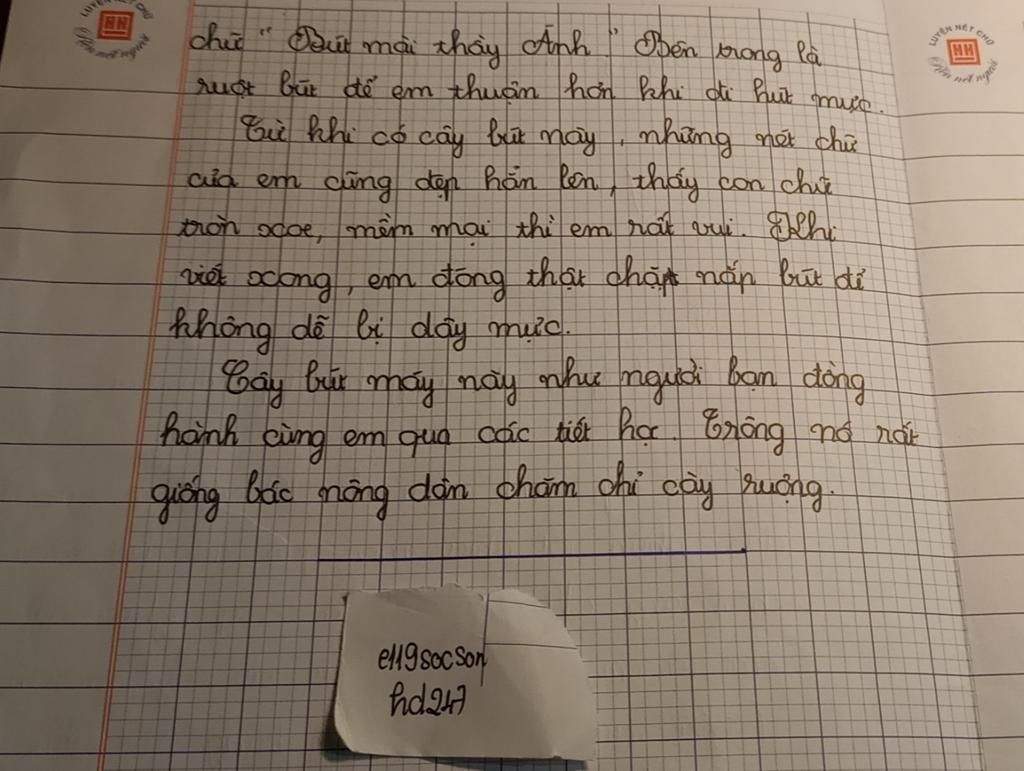 LUYỆN NÉT CHỮ
HH
Rèn nết người
LUYỆN NÉT CHỮ
HH
Rèn nết người
chữ "Bút mài thầy Ánh" Bên trong là
ruột bút để em thuận hơn khi đi hút mực.
Từ khi có cây bút này, những nét chữ
của em cũng đẹp hẳn lên, thấy con chữ
tròn xoe, mềm mại thì em rất vui. Khi
viết xong, em đóng thật chặt nắp bút để
không dễ bị dây mực.
Cây bút máy này như người bạn đồng
hành cùng em qua các tiết học. Trông nó rất
giống bác nông dân chăm chỉ cày ruộng.
e119socson
hd247